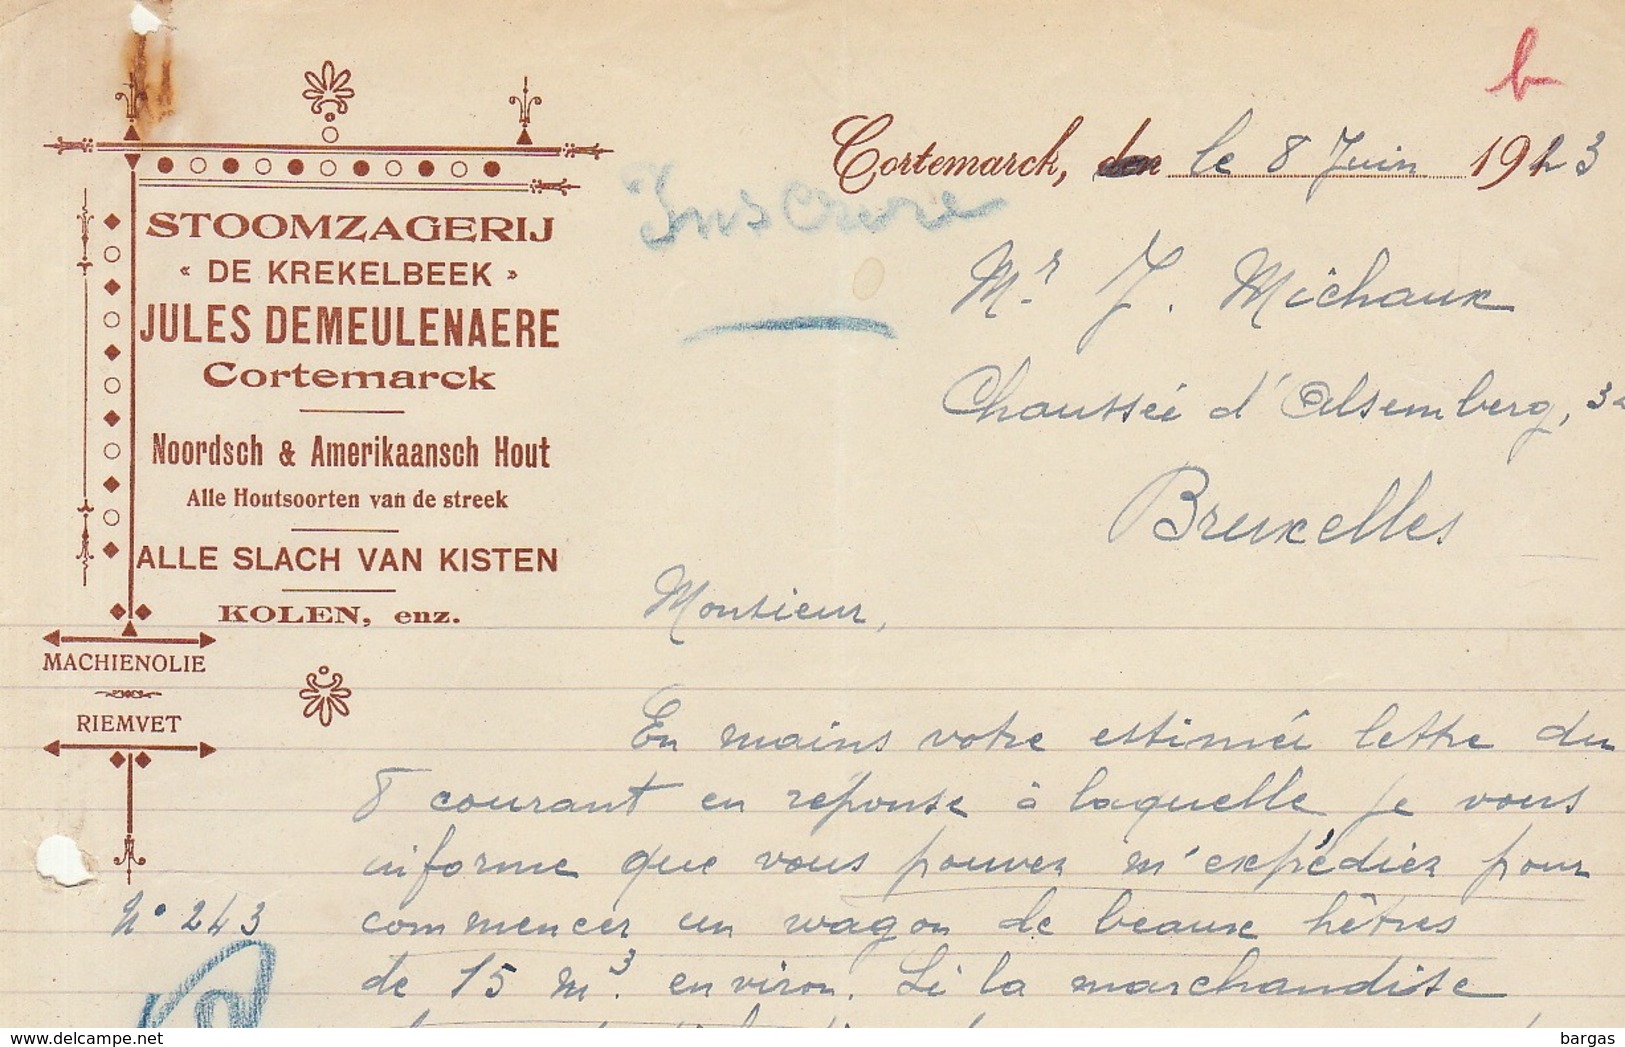 b
Cortemarck, den le 8 Juin 1923
Inscrire
STOOMZAGERIJ
« DE KREKELBEEK »
JULES DEMEULENAERE
Cortemarck
Noordsch & Amerikaansch Hout
Alle Houtsoorten van de streek
ALLE SLACH VAN KISTEN
KOLEN, enz.
MACHIENOLIE
RIEMVET
Mr J. Michaux
Chaussée d'Alsemberg, 32
Bruxelles
Monsieur,
En mains votre estimée lettre du
8 courant en réponse à laquelle je vous
informe que vous pouvez m'expédier pour
No 243
commencer un wagon de beaux hêtres
de 15 m3. environ. Si la marchandise
delcampe.net
bargas